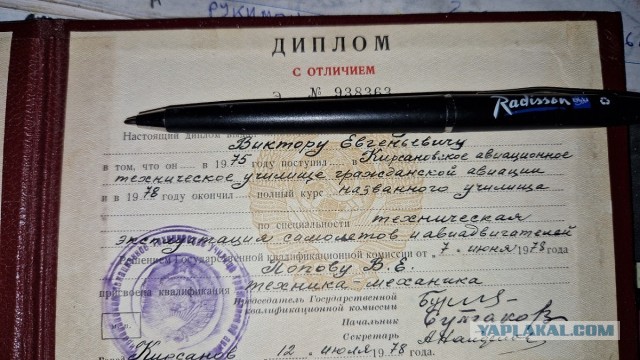 ДИПЛОМ
С ОТЛИЧИЕМ
Э № 938363
Radisson
Настоящий диплом
Виктору Евгеньевичу
в том, что он в 1975 году поступил в Кирсановское авиационное
техническое училище гражданской авиации
и в 1978 году окончил полный курс названного училища
по специальности техническая
эксплуатация самолетов и авиадвигателей
Решением Государственной квалификационной комиссии от 7 июня 1978 года
Попову В. Е.
присвоена квалификация техника механика
Председатель Государственной
квалификационной комиссии
Начальник
Секретарь
Город Кирсанов 12 июля 1978 года
YAPLAKAL.COM